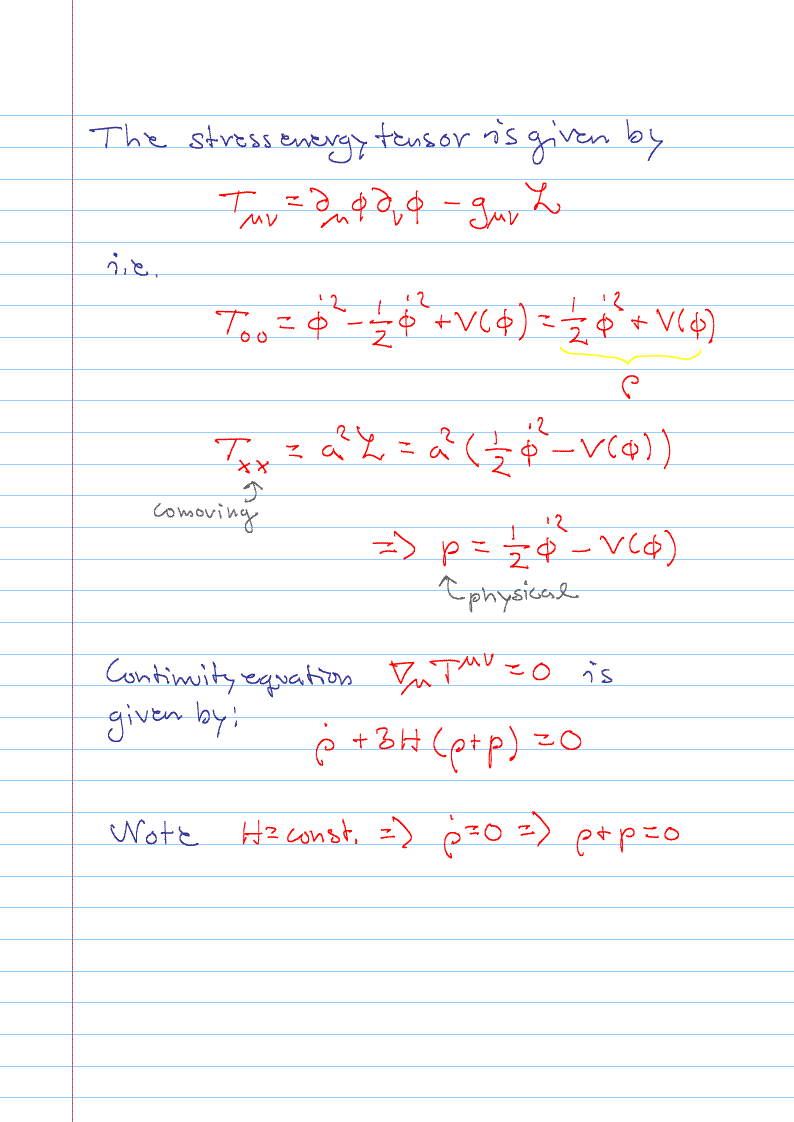 The stress energy tensor is given by
T_μν = ∂_μ ϕ ∂_ν ϕ − g_μν ℒ
i.e.
T_00 = ϕ̇² − 1/2 ϕ̇² + V(ϕ) = 1/2 ϕ̇² + V(ϕ)
ρ
T_xx = a² ℒ = a² (1/2 ϕ̇² − V(ϕ))
comoving
=> p = 1/2 ϕ̇² − V(ϕ)
physical
Continuity equation ∇_μ T^μν = 0 is
given by:
ρ̇ + 3H (ρ+p) = 0
Note H = const. => ρ̇ = 0 => ρ + p = 0